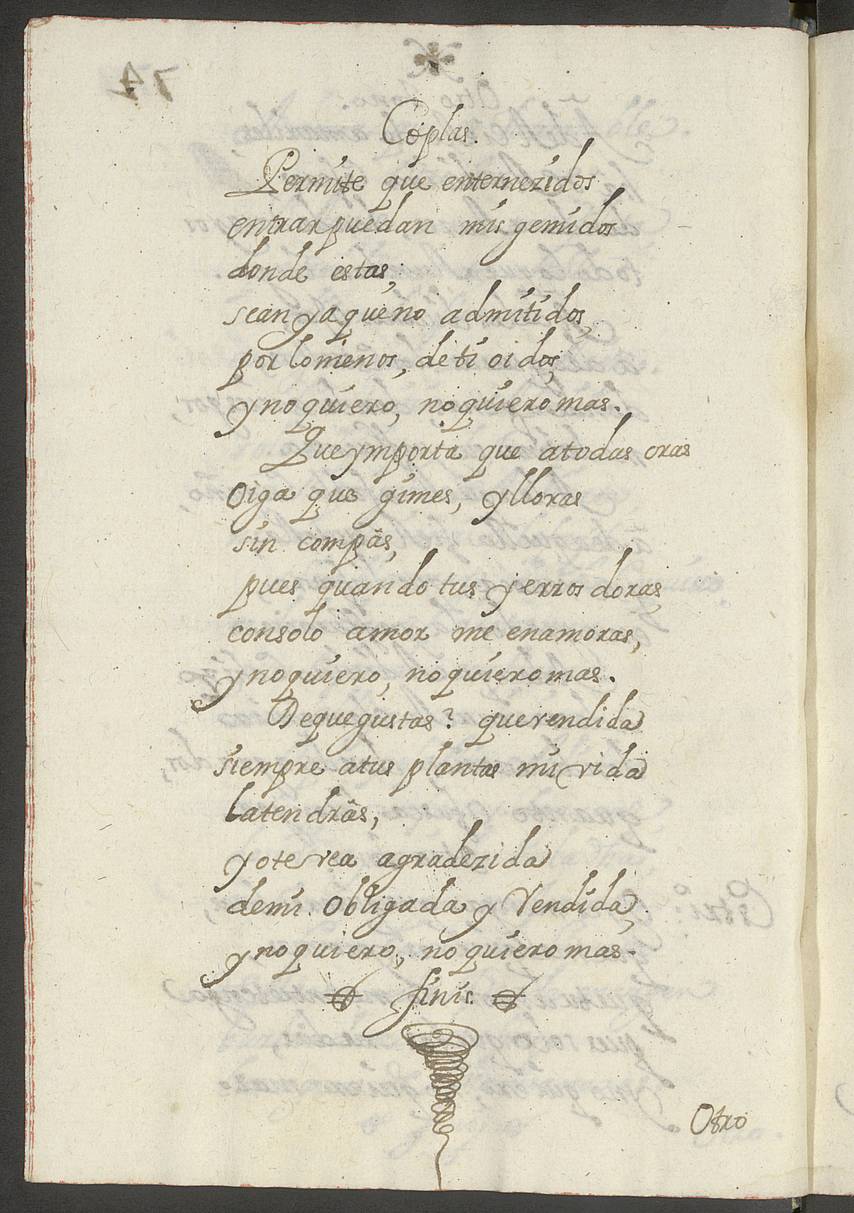 Coplas.
Permite que enternezidos
entrar puedan mis gemidos
donde estas,
sean ya que no admitidos,
por lo menos, de ti oidos,
y no quiero, no quiero mas.
Que ymporta que a todas oras
Oiga que gimes, y lloras
sin compâs,
pues quando tus yerros doras,
con solo amor me enamoras,
y no quiero, no quiero mas.
De que gustas? que rendida
siempre a tus plantas mi vida
la tendrâs,
yo te vea agradezida
de mi obligada y Rendida,
y no quiero, no quiero mas.
finis.
Otro